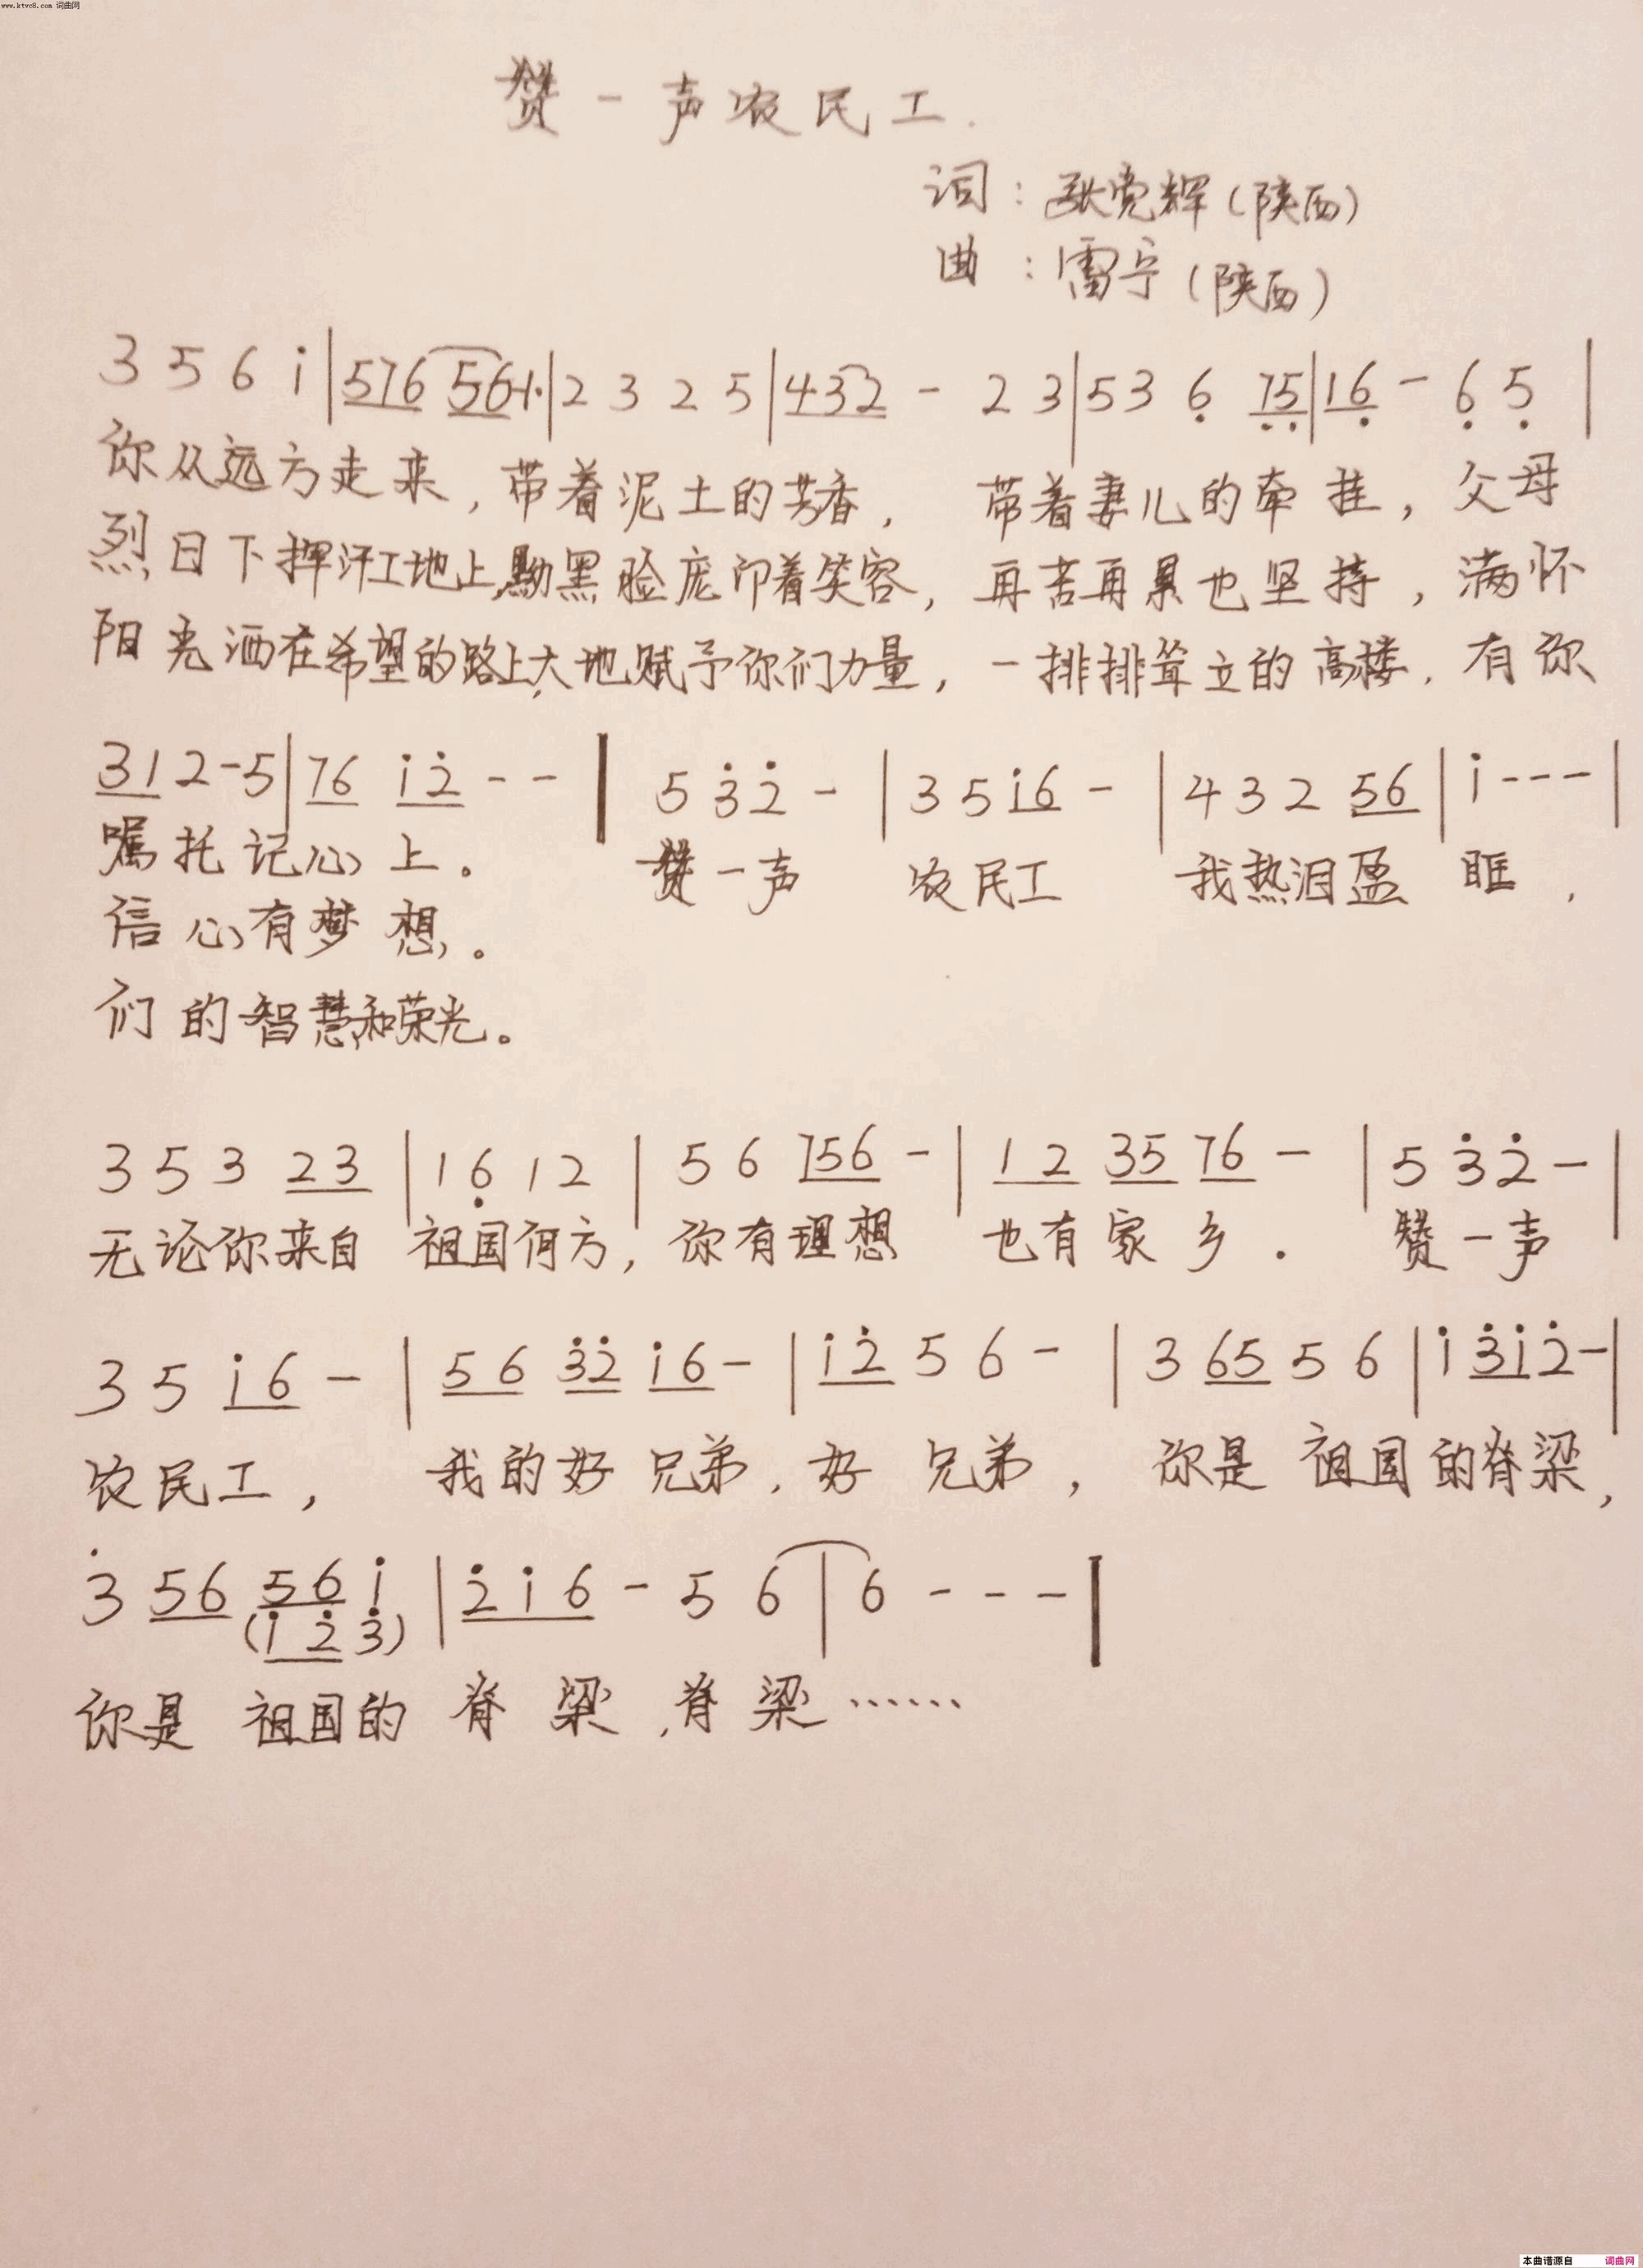 www.ktvc8.com 词曲网
赞一声农民工.
词:张党辉(陕西)
曲:雷宁(陕西)
3 5 6 i | 576 561· | 2 3 2 5 | 432 - 2 3 | 5 3 6 75 | 16 - 6 5 |
你从远方走来,带着泥土的芳香, 带着妻儿的牵挂,父母
烈日下挥汗工地上,黝黑脸庞印着笑容,再苦再累也坚持,满怀
阳光洒在希望的路上,大地赋予你们力量,一排排耸立的高楼.有你
31 2 - 5 | 76 i2 - - | 5 3 2 - | 3 5 i6 - | 4 3 2 56 | i - - - |
嘱托记心上。 赞一声 农民工 我热泪盈眶,
信心有梦想。
们的智慧和荣光。
3 5 3 23 | 1 6 1 2 | 5 6 756 - | 12 35 76 - | 5 3 2 - |
无论你来自 祖国何方,你有理想 也有家乡. 赞一声
3 5 i6 - | 56 32 i6 - | i2 5 6 - | 3 65 5 6 | i 3i 2 - |
农民工, 我的好兄弟.好兄弟, 你是祖国的脊梁,
3 56 56 i | 2i6 - 5 6 | 6 - - - |
(i 2 3)
你是 祖国的 脊梁,脊梁……
本曲谱源自 词曲网